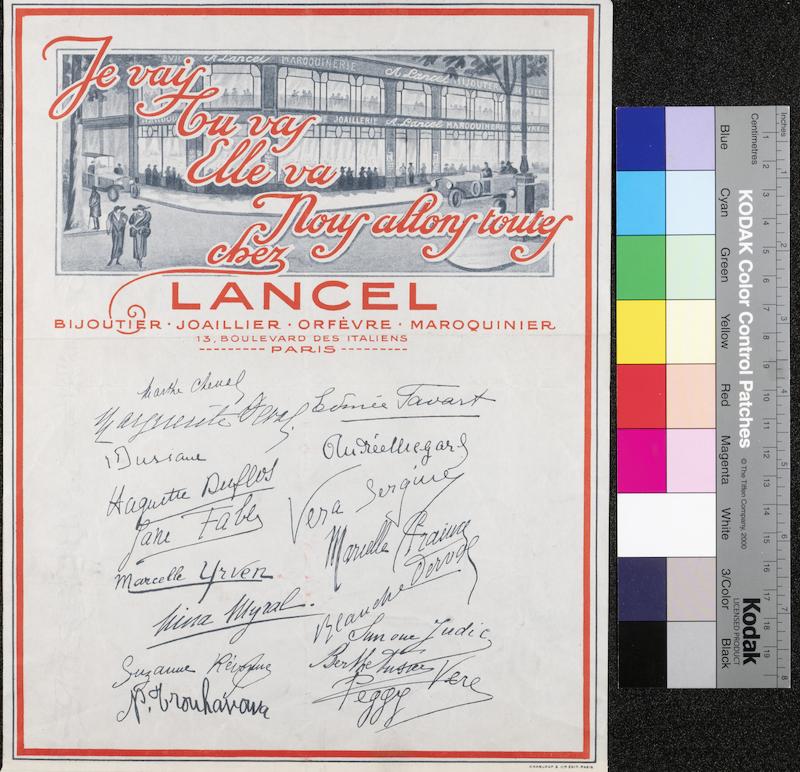 A. Lancel MAROQUINERIE A. Lancel BIJOUTERIE
JOAILLERIE A. Lancel MAROQUINERIE
Je vais
Tu vas
Elle va
Nous allons toutes
chez
LANCEL
BIJOUTIER · JOAILLIER · ORFÈVRE · MAROQUINIER
13, BOULEVARD DES ITALIENS
PARIS
Marthe Chenal
Marguerite Deval Edmée Favart
Dussane
Andrée Mégard
Huguette Duflos
Vera Sergine
Jane Faber
Marcelle Praince
Marcelle Yrven
Blanche Derval
Nina Myral.
Simone Judic
Suzanne Révonne
Berthe
N. Trouhanowa
Peggy Vere
Inches
Centimetres
1 2 3 4 5 6 7 8
1 2 3 4 5 6 7 8 9 10 11 12 13 14 15 16 17 18 19
KODAK Color Control Patches
© The Tiffen Company, 2000
Kodak
LICENSED PRODUCT
Blue
Cyan
Green
Yellow
Red
Magenta
White
3/Color
Black